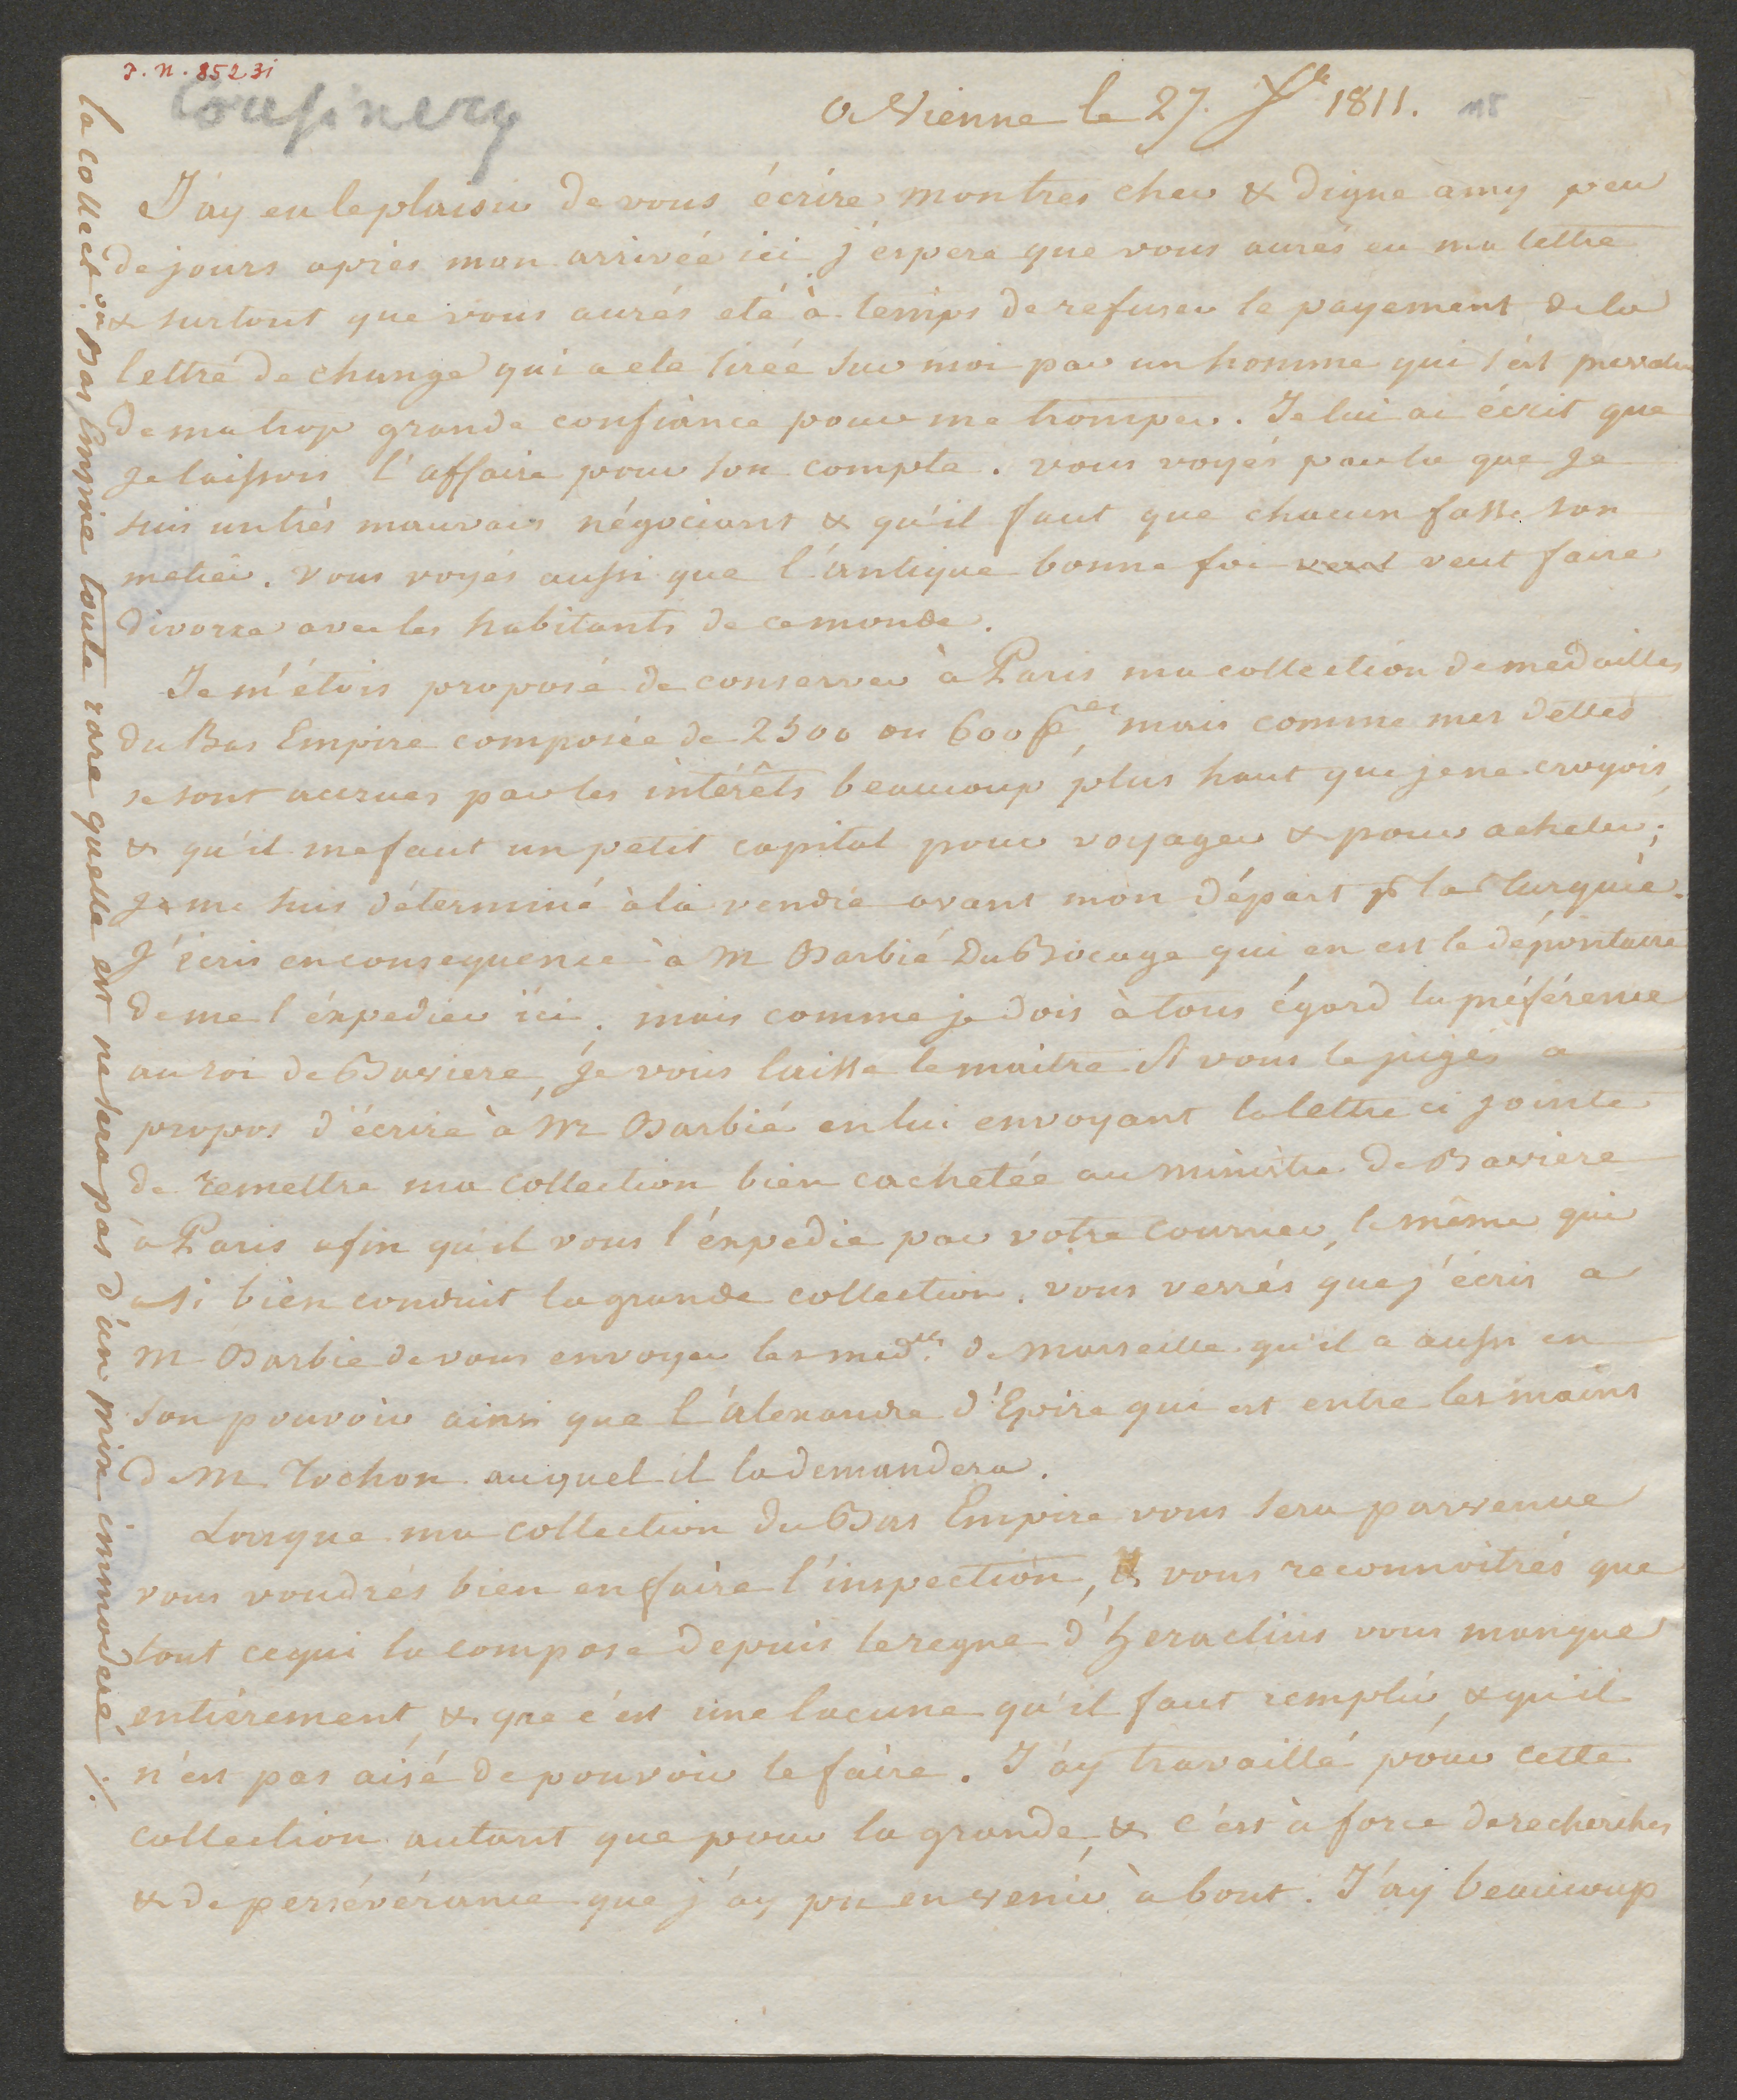 J.N. 85231
Cousinery
a Vienne le 27. Xbre 1811.
J'ay eu le plaisir de vous écrire mon tres cher & digne amy peu
de jours après mon arrivée ici j'espere que vous aurés eu ma lettre
& surtout que vous aurés eté à temps de refuser le payement de la
lettre de change qui a eté tirée sur moi par un homme qui s'est prevalu
de ma trop grande confiance pour me tromper. Je lui ai écrit que
je laissois l'affaire pour son compte. vous voyés par la que je
suis un très mauvais négociant & qu'il faut que chacun fasse son
metier. vous voyés aussi que l'antique bonne foi veut veut faire
divorce avec les habitants de ce monde.
Je m'étois proposé de conserver à Paris ma collection de medailles
du Bas Empire composée de 2500 ou 600 pces, mais comme mes dettes
se sont accrues par les intérêts beaucoup plus haut que je ne croyois,
& qu'il me faut un petit capital pour voyager & pour acheter;
je me suis déterminé à la vendre avant mon départ pr la Turquie.
J'écris en consequence à M Barbié Du Bocage qui en est le dépositaire
de me l'éxpedier ici. mais comme je dois à tous égard la préférence
au roi de Baviere, je vous laisse le maitre si vous le jugés a
propos d'écrire à Mr Barbié en lui envoyant la lettre ci jointe
de remettre ma collection bien cachetée au ministre de Baviere
à Paris afin qu'il vous l'éxpedie par votre courrier, le même qui
a si bien conduit la grande collection. vous verrés que j'écris a
M Barbié de vous envoyer les medles de Marseille qu'il a aussi en
son pouvoir ainsi que l'alexandre d'Epire qui est entre les mains
de M. Tochon auquel il la demandera.
Lorsque ma collection du Bas Empire vous sera parvenue
vous voudrés bien en faire l'inspection, & vous reconnoitrés que
tout ce qui la compose depuis le regne d'heraclius vous manque
entiérement, & que c'est une lacune qu'il faut remplir, & qu'il
n'est pas aisé de pouvoir le faire. J'ay travaillé pour cette
collection autant que pour la grande, & c'est à force de recherches
& de persévérance que j'ay pu en venir à bout. J'ay beaucoup
la collection du Bas Empire toute rare quelle est ne sera pas d'un prix immoderé ./.